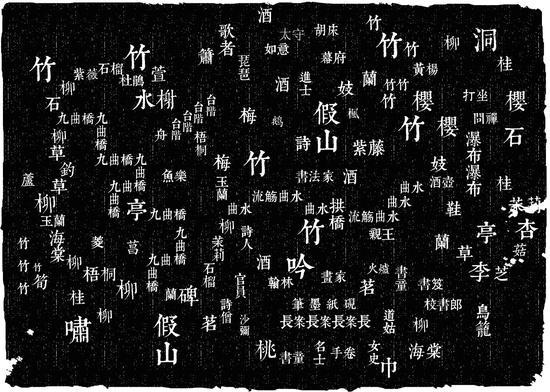 酒
歌者
太守
胡床
如意
幕府
竹
竹
竹
柳
洞
桂
竹
竹
簫
琵琶
紫薇
石榴
杜鵑
萱
柳
黃楊
蘭
竹竹
竹
酒
進士
妓
打坐
櫻
櫻
櫻
問禪
石
水榭
台階
台階
台階
梅
鵡
假山
楓
竹
石
九曲橋
九曲橋
柳
草
舟
梧桐
詩
紫藤
瀑布
瀑布
九曲橋
九曲橋
梅
竹
妓
釣
魚樂
蘆
草
玉蘭
書法家
酒
酒壺
桂
九曲橋
九曲橋
流觴曲水
曲水
曲水
柳
亭
九曲橋
曲水
曲水
拱橋
流觴曲水
鞋
玉蘭
柳
詩人
竹
親王
杏
亭
海棠
九曲橋
茉莉
蘭
草
菇
竹
菱
菖
竹
竹
筍
柳
梧桐
九曲橋
石榴
酒
吟
李
芝
官員
翰林
畫家
火爐
書童
茗
書笈
桂
柳
蘭
碑
詩僧
沙彌
筆墨紙硯
校書郎
鳥籠
嘯
柳
假山
茗
長案長案長案長案
道姑
柳
桃
書童
名士
手卷
女史
巾
海棠